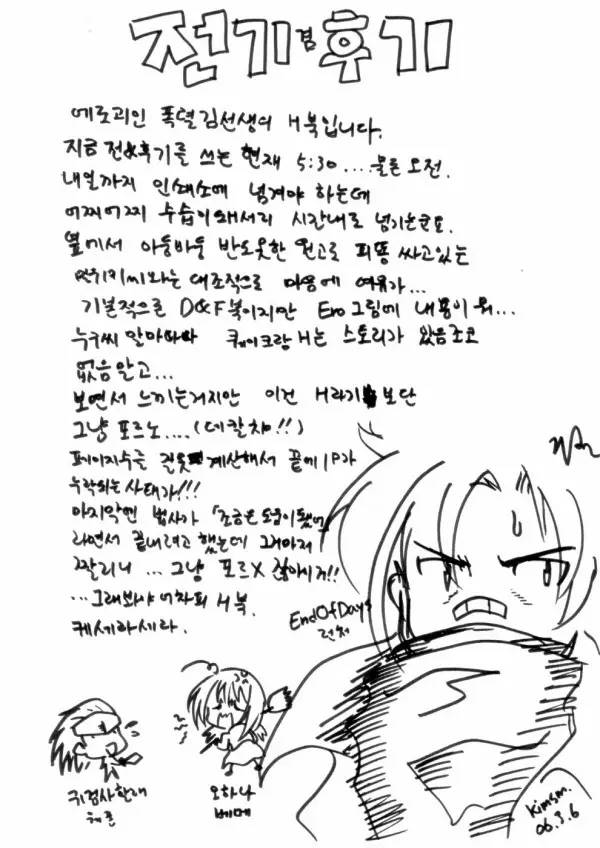 전기 겸 후기
에로괴인 폭렬김선생의 H북입니다.
지금 전&후기를 쓰는 현재 5:30....물론 오전.
내일까지 인쇄소에 넘겨야 하는데
어찌어찌 수습이돼서리 시간내로 넘기는군요.
옆에서 아둥바둥 반도못한 원고로 피똥 싸고있는
대조적으로 마음에 여유가...
기본적으로 D&F북이지만 Ero그림에 내용이 뭐...
누구씨 말마따나 퀘이크랑 H는 스토리가 있음 조코
없음 말고...
보면서 느끼는거지만 이건 H라기 보단
그냥 포르노....(데칼챠!!)
페이지수를 잘못 계산해서 끝에 1P가
누락되는 사태가!!!
마지막엔 법사가 「조금은 도움이 됐어
라면서 끝내려고 했는데 그마저
짤리니 ... 그냥 포르X 잖아시꺄!!
...그래봐야 어차피 H북.
케세라세라.
EndOfDays
런처
귀검사한래
오하나
베메
Kimsm.
06.3.6